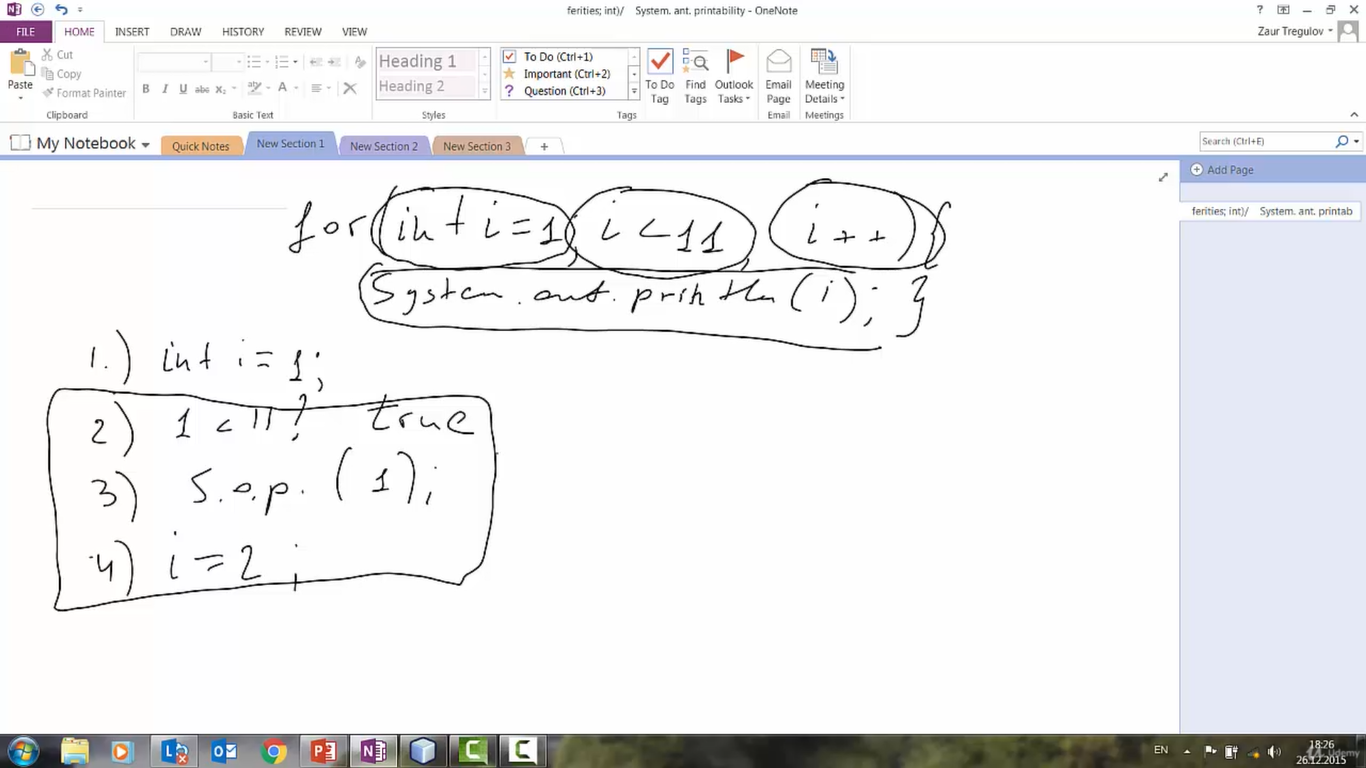 ferities; int)/ System. ant. printability - OneNote
?
FILE HOME INSERT DRAW HISTORY REVIEW VIEW
Zaur Tregulov
Paste
Cut
Copy
Format Painter
Clipboard
B I U abc x₂ A
Basic Text
Heading 1
Heading 2
Styles
To Do (Ctrl+1)
Important (Ctrl+2)
? Question (Ctrl+3)
Tags
To Do Tag
Find Tags
Outlook Tasks
Email Page
Email
Meeting Details
Meetings
My Notebook
Quick Notes
New Section 1
New Section 2
New Section 3
+
Search (Ctrl+E)
Add Page
ferities; int)/ System. ant. printab
for (int i=1; i<11; i++) {
System.out.println(i); }
1.) int i=1;
2) 1<11? true
3) S.o.p. (1);
4) i=2;
EN
18:26
26.12.2015
Udemy